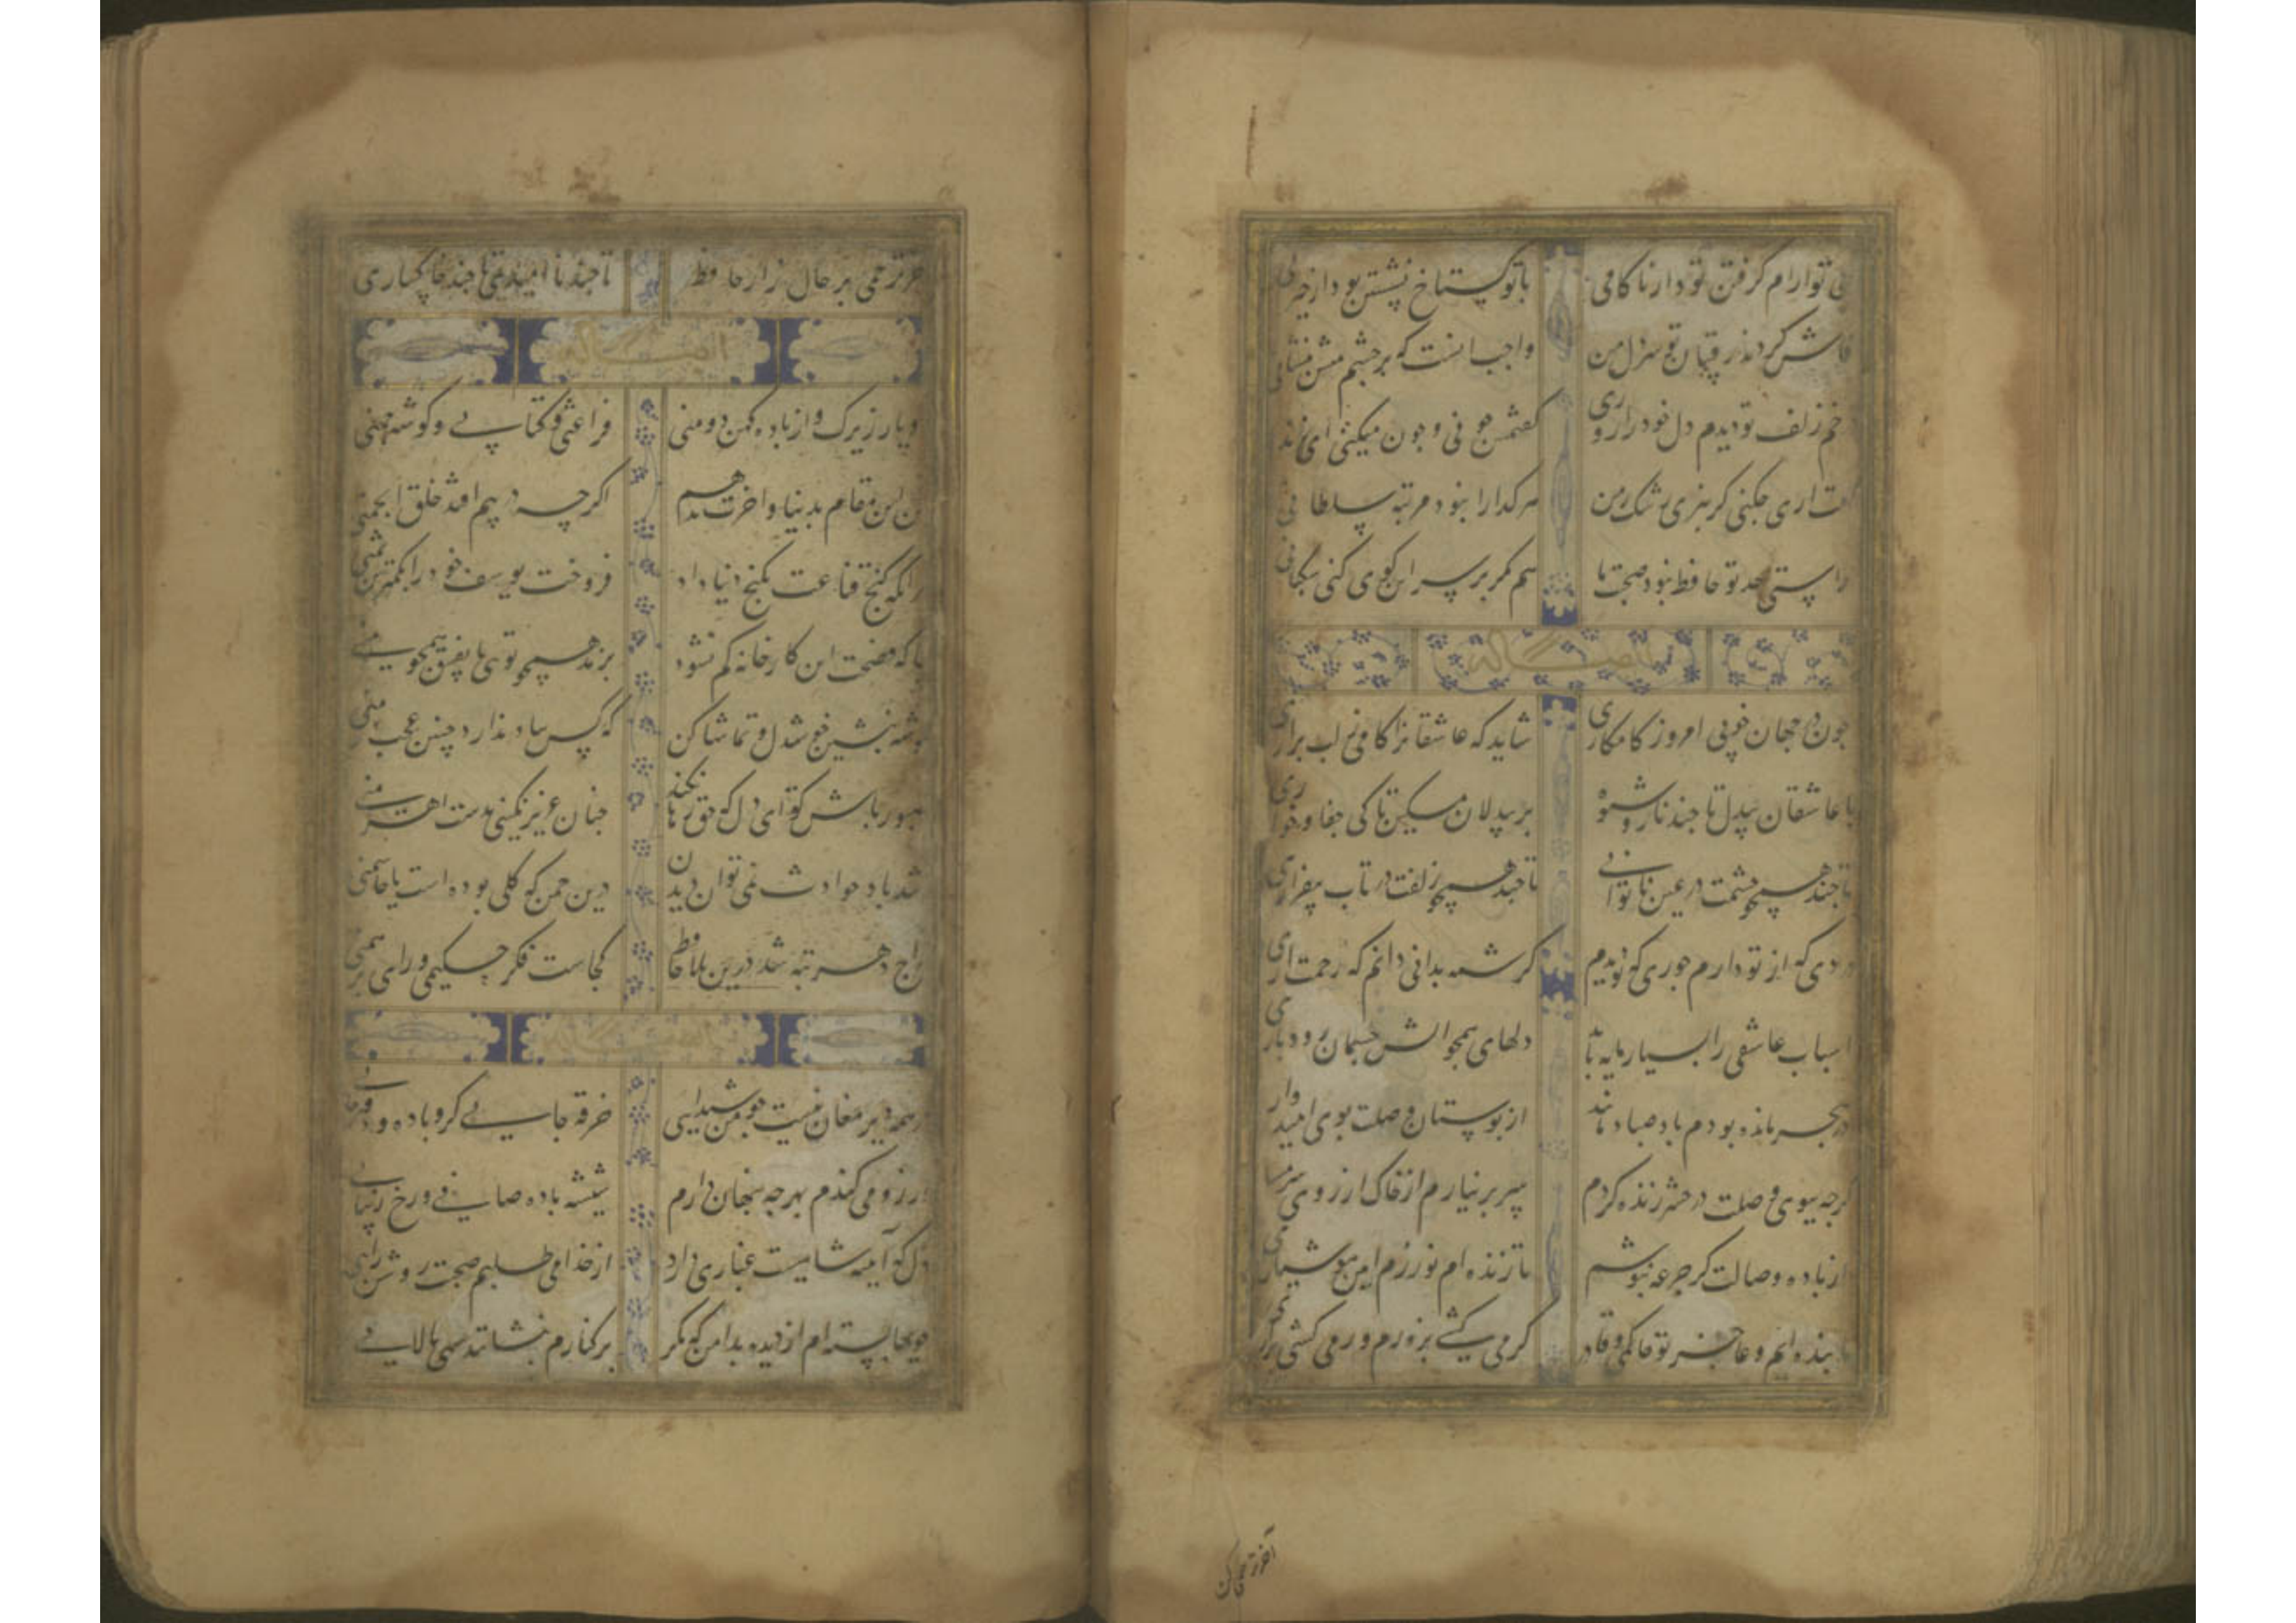 بی تو ارام کرفتن بود از ناکامی با تو کستاخ نشستن بود از حیرانی
فاش کردند رقیبان تو سر دل من واجب انست که بر چشم منش بنشانی
خم زلف تو دیدم دل خود را روزی کفتمش چونی و چون میکنی ای زندانی
کفت اری چکنی کر نبری رشک بمن هر کدا را نبود مرتبه سلطانی
راستی حد تو حافظ نبود صحبت ما بس مکر بر سر این کوی کنی سکبانی
چون در جهان خوبی امروز کامکاری شاید که عاشقانرا کامی ز لب براری
با عاشقان بیدل تا چند ناز و شیوه بر بیدلان مسکین تا کی جفا و خواری
تا چند همچو چشمت در عین ناتوانی تا چند همچو زلفت در تاب بیقراری
دردی که از تو دارم جوری که از تو دیدم کر شمه بدانی دانم که رحمت اری
اسباب عاشقی را بسیار مایه باید دلهای همچو اتش چشمان رودباری
در هجر مانده بودم باد صبا رساند از بوستان وصلت بوی امیدواری
کرچه ببوی وصلت در حشر زنده کردم سر بر نیارم از خاک از روی شرمساری
از باده وصالت کر جرعه بنوشم تا زنده ام نورزم ایین هوشیاری
ما بنده ایم و عاجز تو حاکمی و قادر کر می کشی بزورم ور می کشی بزاری
اخر ترحمی کن
اخر ترحمی بر حال زار حافظ تا چند نا امیدی تا چند خاکساری
دو یار زیرک و از باده کهن دو منی فراغتی و کتابی و کوشه چمنی
من این مقام بدنیا و اخرت ندهم اکرچه در پیم افتند خلق انجمنی
هر انکه کنج قناعت بکنج دنیا داد فروخت یوسف خود را بکمترین ثمنی
بیا که فسحت این کارخانه کم نشود بزهد همچو توی یا بفسق همچو منی
بکوشه بنشین خوشدل و تماشا کن که کس بیاد ندارد چنین عجب منی
صبور باش تو ای دل که حق رها نکند چنان عزیز نکینی بدست اهرمنی
ز تند باد حوادث نمی توان دیدن درین چمن که کلی بوده است یا سمنی
مزاج دهر تبه شد درین بلا حافظ کجاست فکر حکیمی و رای برهمنی
در همه دیر مغان نیست چو من شیدایی خرقه جایی کرو باده و دفتر جایی
ارزو می کندم بهر چه پنهان دارم شیشه باده صافی و رخ زیبایی
دل که آینه شاهیست غباری دارد از خدا می طلبم صحبت روشن رایی
جویها بسته ام از دیده بدامن که مکر بر کنارم بنشانند سهی بالایی